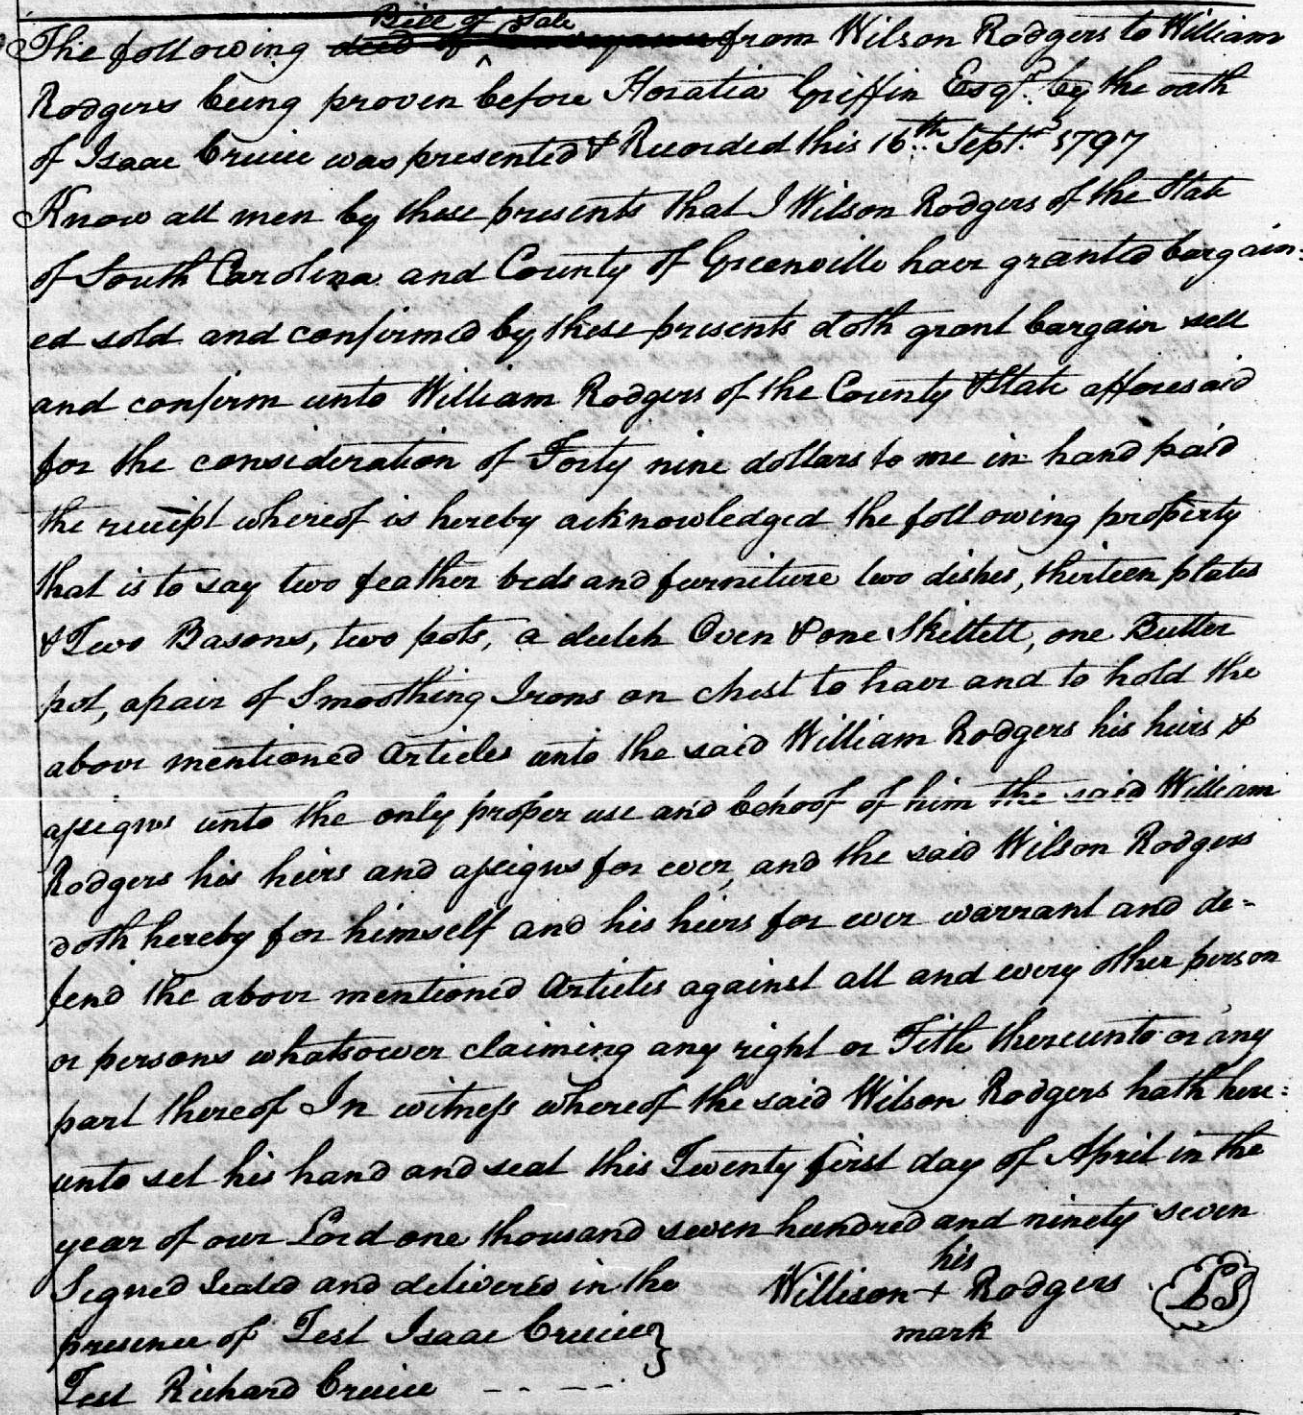 Bill of Sale
The following deed of conveyance from Wilson Rodgers to William
Rodgers being proven before Horatia Griffin Esqr. by the oath
of Isaac Cruice was presented & Recorded this 16th Septr. 1797
Know all men by these presents that I Wilson Rodgers of the State
of South Carolina and County of Greenville have granted bargain=
ed sold and confirmed by these presents doth grant bargain sell
and confirm unto William Rodgers of the County & State afforesaid
for the consideration of Forty nine dollars to me in hand paid
the receipt whereof is hereby acknowledged the following property
that is to say two feather beds and furniture two dishes, thirteen plates
& Two Basons, two pots, a dutch Oven & one Skillett, one Butter
pot, a pair of Smoothing Irons on chest to have and to hold the
above mentioned Articles unto the said William Rodgers his heirs &
assigns unto the only proper use and behoof of him the said William
Rodgers his heirs and assigns for ever, and the said Wilson Rodgers
doth hereby for himself and his heirs for ever warrant and de-
fend the above mentioned Articles against all and every other person
or persons whatsoever claiming any right or Title thereunto or any
part thereof In witness whereof the said Wilson Rodgers hath here=
unto set his hand and seal this Twenty first day of April in the
year of our Lord one thousand seven hundred and ninety seven
Signed Sealed and delivered in the
his
Willison + Rodgers LS
mark
presence of Test Isaac Cruice
Test Richard Cruice